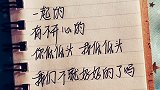 一起的
有不开心的
你低低头 我低低头
我们不就好好的了吗